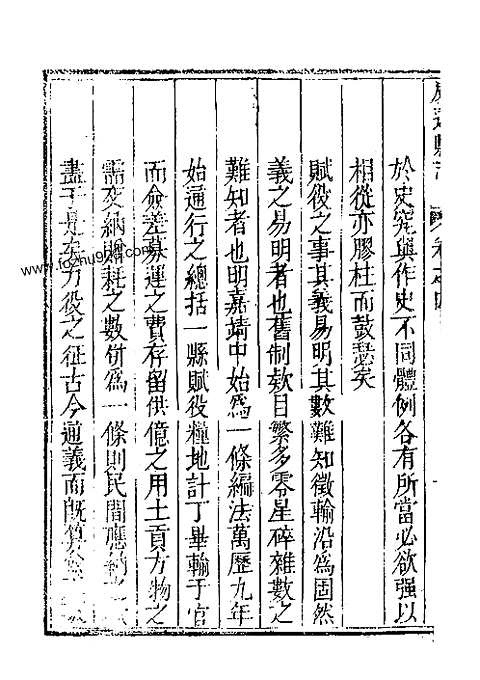 於史究與作史不同體例各有所當必欲强以
相從亦膠柱而鼓瑟矣
賦役之事其義易明其數難知徵輸沿為固然
義之易明者也舊制欵目繁多零星碎雜數之
難知者也明嘉靖中始為一條編法萬歷九年
始通行之總括一縣賦役糧地計丁畢輸于官
而僉差募運之費存留供億之用土貢方物之
需交納贈耗之數併為一條則民間應
盡于是矣力役之征古今通義而既